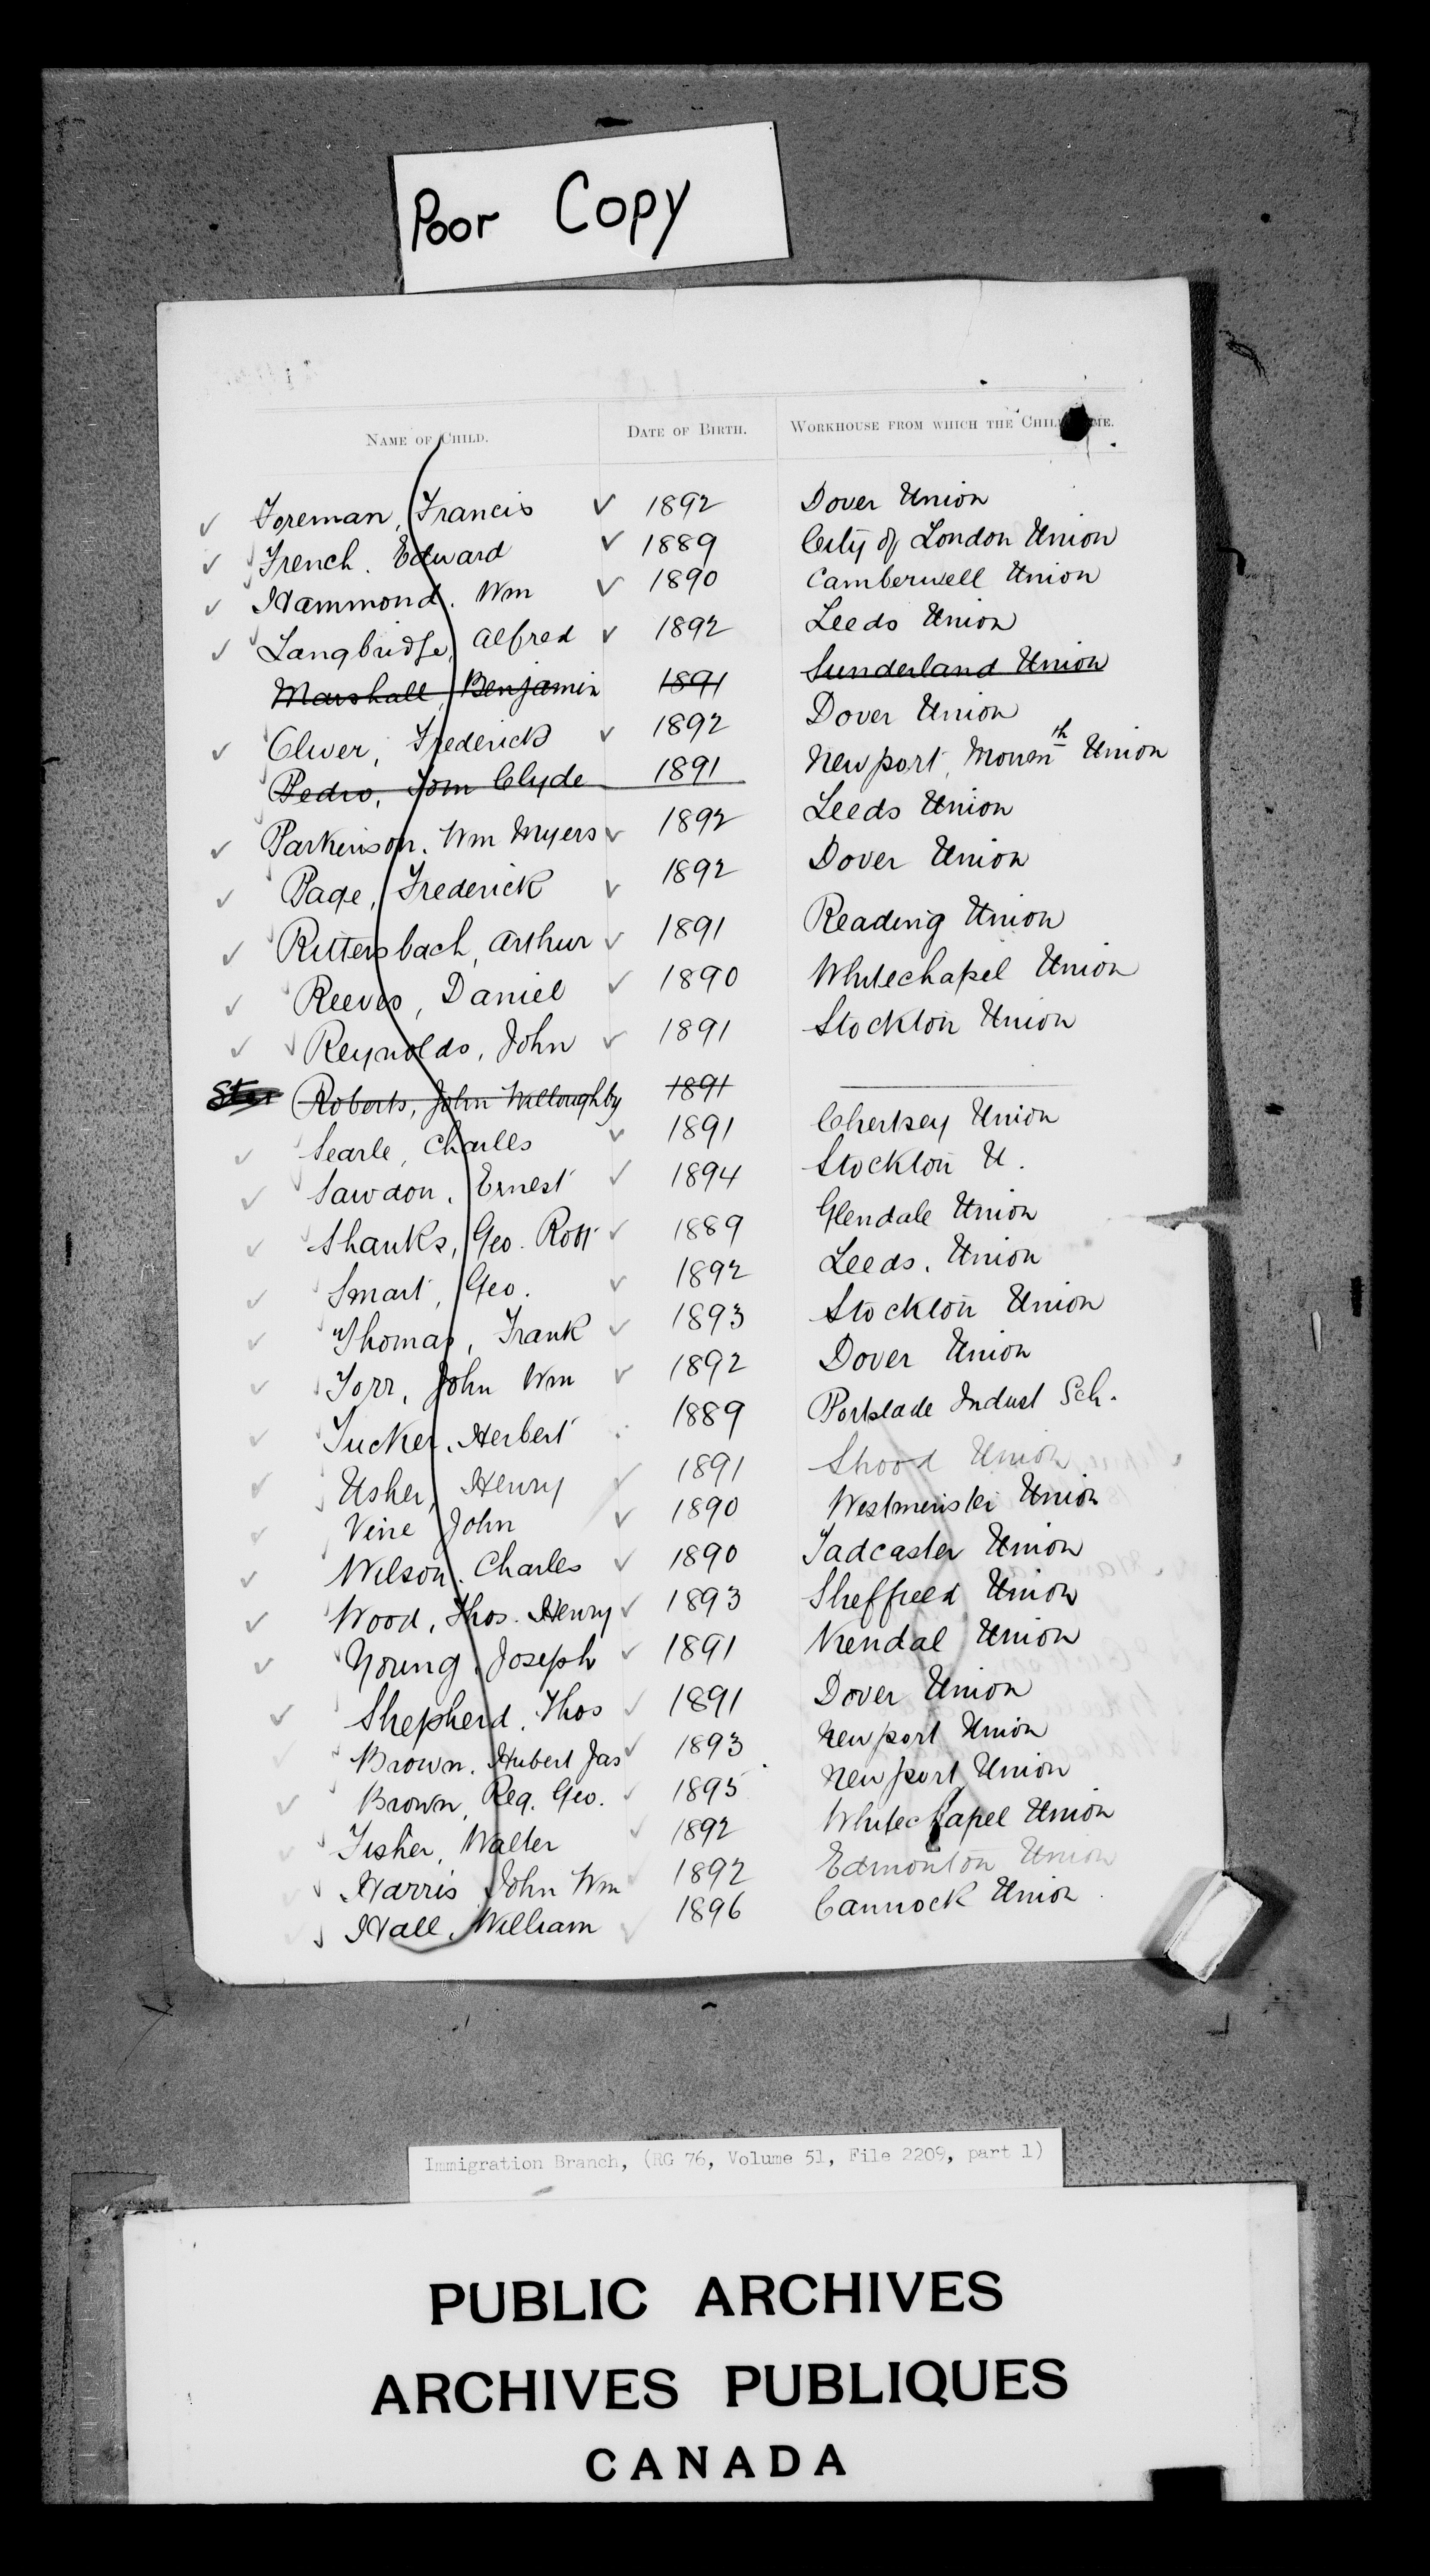 Poor Copy
NAME OF CHILD. DATE OF BIRTH. WORKHOUSE FROM WHICH THE CHILD ME.
Foreman, Francis 1892 Dover Union
French. Edward 1889 City of London Union
Hammond. Wm 1890 Camberwell Union
Langbridge, Alfred 1892 Leeds Union
Marshall, Benjamin 1891 Sunderland Union
Oliver, Frederick 1892 Dover Union
Pedro, Tom Clyde 1891 Newport, Monmth Union
Parkinson. Wm Myers 1892 Leeds Union
Page, Frederick 1892 Dover Union
Rittersbach, Arthur 1891 Reading Union
Reeves, Daniel 1890 Whitechapel Union
Reynolds, John 1891 Stockton Union
Roberts, John Willoughby 1891
Searle, Charles 1891 Chertsey Union
Sawdon, Ernest 1894 Stockton U.
Shanks, Geo. Robt 1889 Glendale Union
Smart, Geo. 1892 Leeds. Union
Thomas, Frank 1893 Stockton Union
Torr, John Wm 1892 Dover Union
Tucker. Herbert 1889 Portslade Indust Sch.
Usher, Henry 1891 Union
Vine John 1890 Westminster Union
Wilson. Charles 1890 Tadcaster Union
Wood, Thos. Henry 1893 Sheffield Union
Young, Joseph 1891 Kendal Union
Shepherd, Thos 1891 Dover Union
Brown, Hubert Jas 1893 Newport Union
Brown, Reg. Geo. 1895 Newport Union
Fisher, Walter 1892 Whitechapel Union
Harris John Wm 1892 Edmonton Union
Hall, William 1896 Cannock Union
Immigration Branch, (RG 76, Volume 51, File 2209, part 1)
PUBLIC ARCHIVES
ARCHIVES PUBLIQUES
CANADA